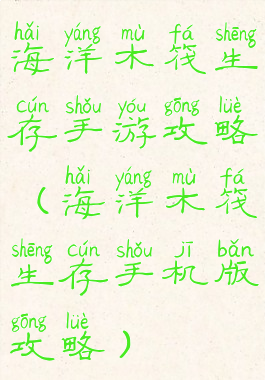 hǎi yáng mù fá shēng
海洋木筏生
cún shǒu yóu gōng lüè
存手游攻略
hǎi yáng mù fá
（海洋木筏
shēng cún shǒu jī bǎn
生存手机版
gōng lüè
攻略）